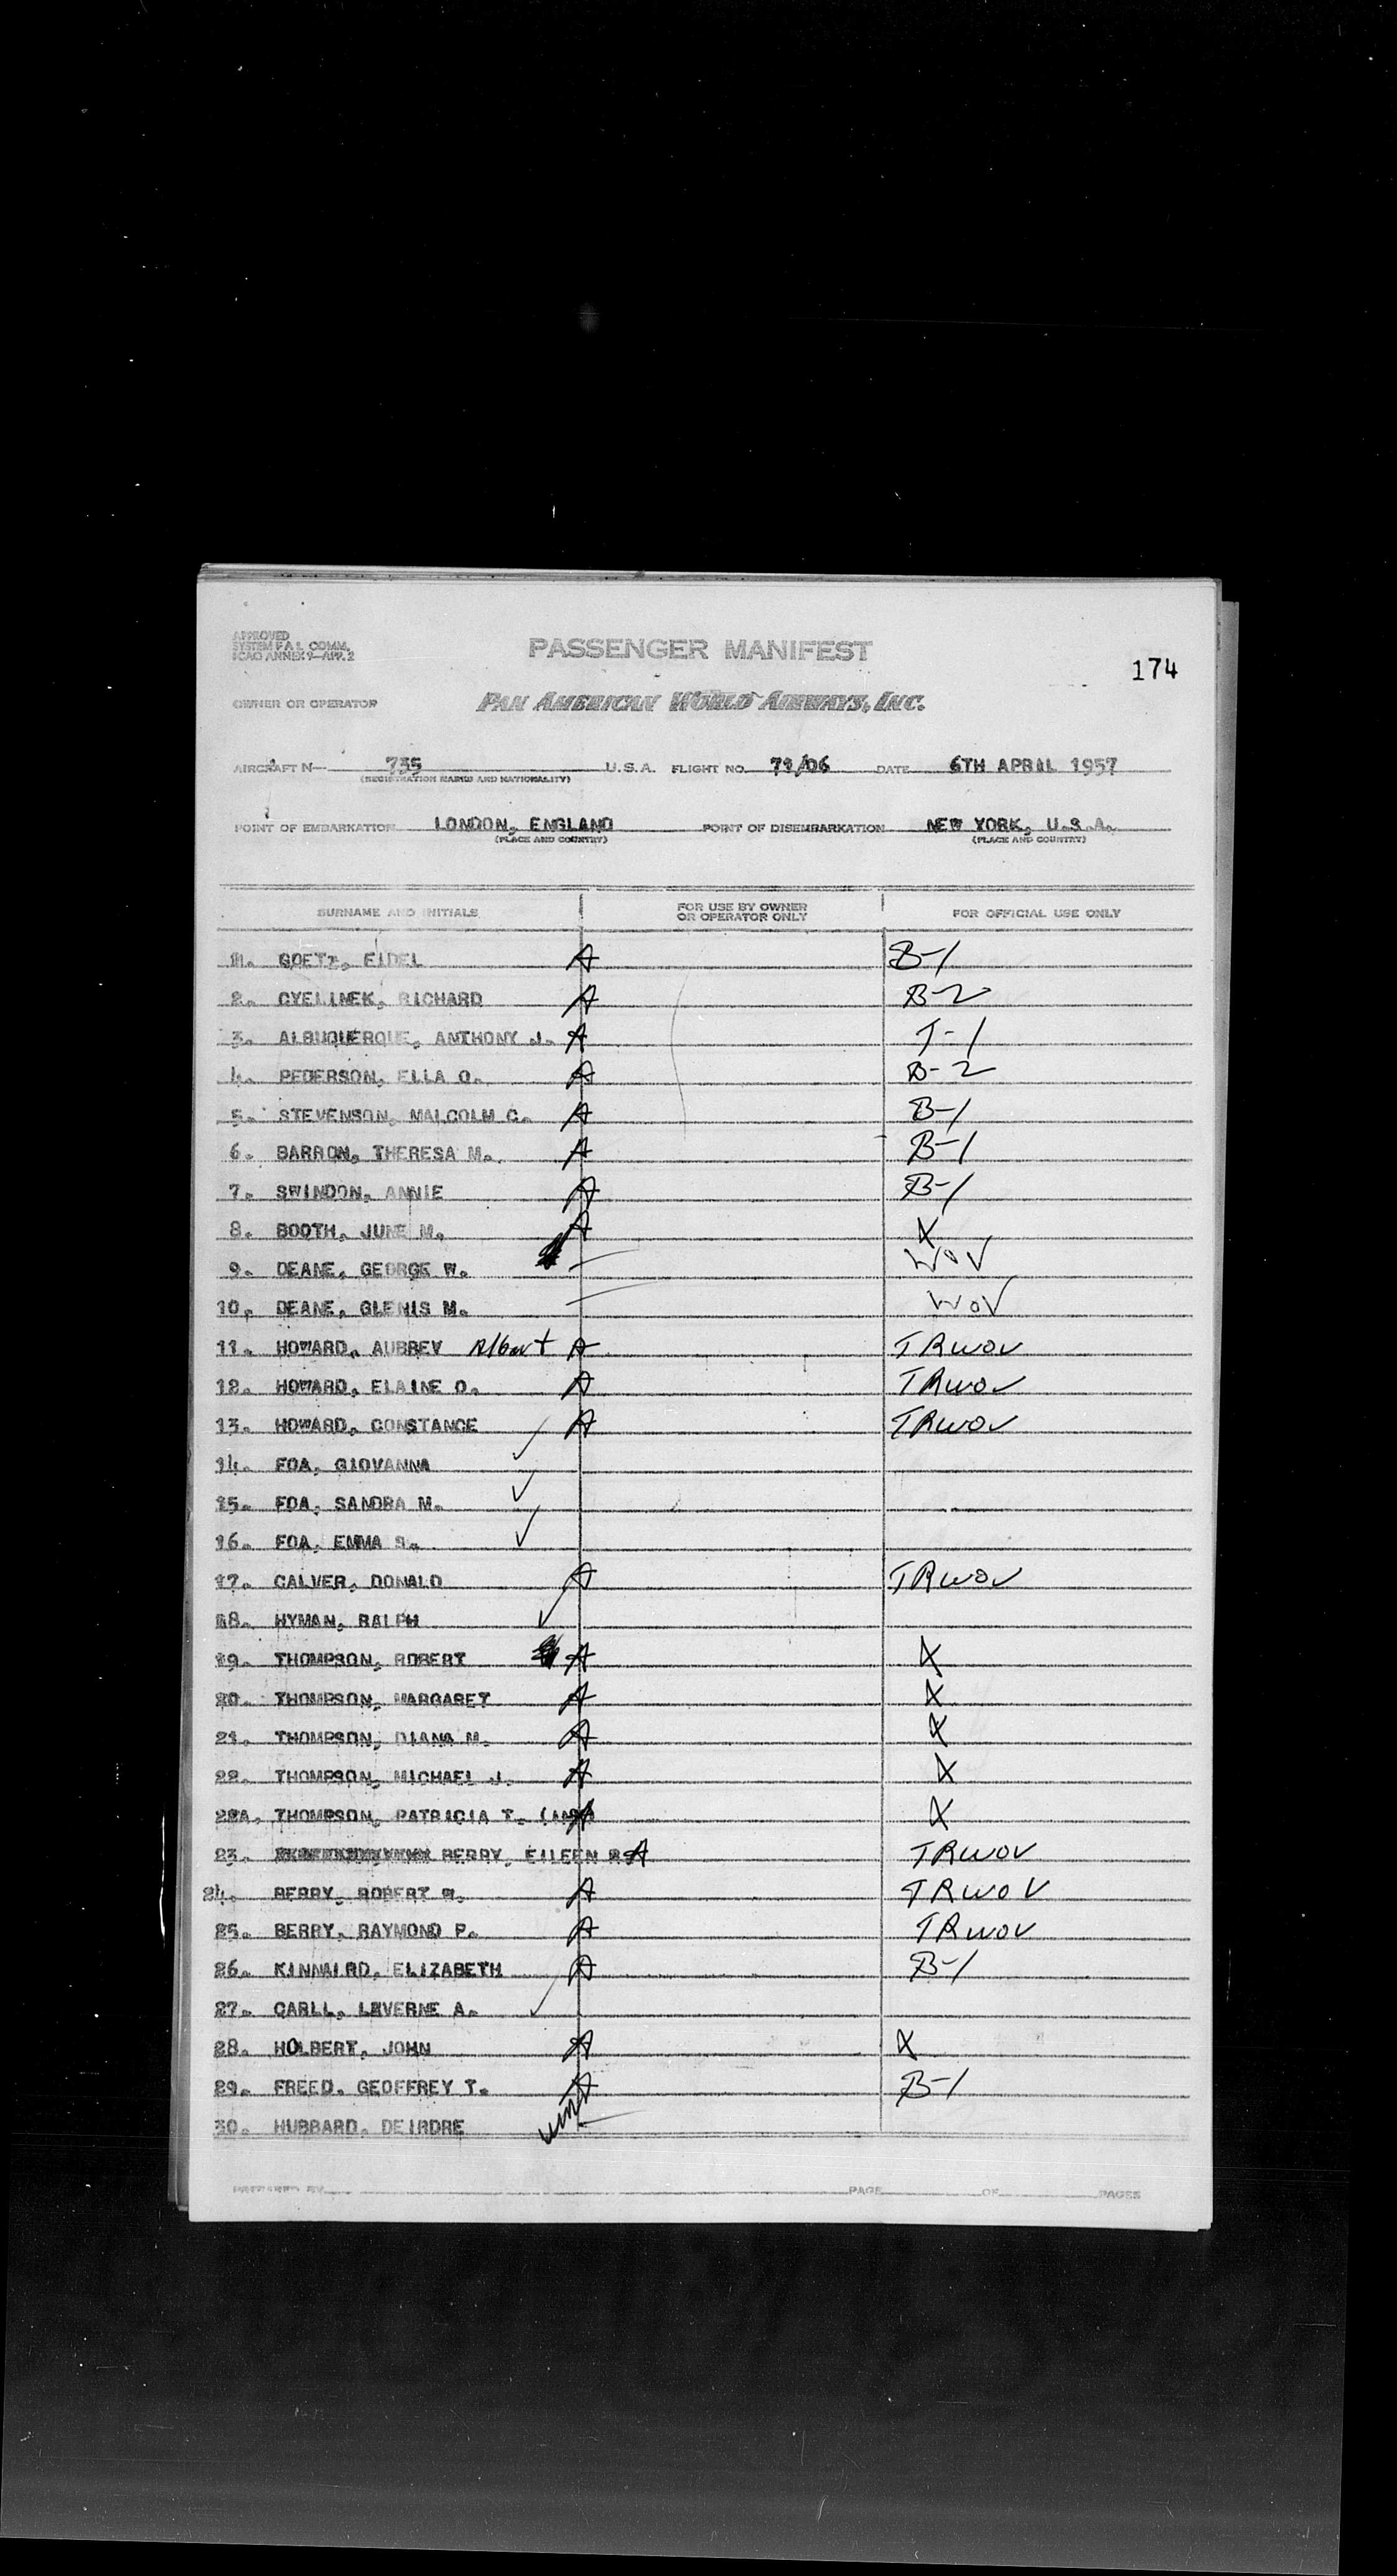 APPROVED
SYSTEM F A L COMM.
ICAO ANNEX 9—APP. 2
PASSENGER MANIFEST
174
OWNER OR OPERATOR
PAN AMERICAN WORLD AIRWAYS, INC.
AIRCRAFT N— 735 U.S.A. FLIGHT NO. 71/06 DATE 6TH APRIL 1957
(REGISTRATION MARKS AND NATIONALITY)
POINT OF EMBARKATION LONDON, ENGLAND POINT OF DISEMBARKATION NEW YORK, U.S.A.
(PLACE AND COUNTRY) (PLACE AND COUNTRY)
SURNAME AND INITIALS FOR USE BY OWNER OR OPERATOR ONLY FOR OFFICIAL USE ONLY
1. GOETZ, EIDEL A B-1
2. CYELINEK, RICHARD A B-2
3. ALBUQUERQUE, ANTHONY J. A T-1
4. PEDERSON, ELLA O. A B-2
5. STEVENSON, MALCOLM C. A B-1
6. BARRON, THERESA M. A B-1
7. SWINDON, ANNIE A B-1
8. BOOTH, JUNE M. A X
9. DEANE, GEORGE W. — WOV
10. DEANE, GLENIS M. — WOV
11. HOWARD, AUBREY Albert A TRWOV
12. HOWARD, ELAINE O. A TRWOV
13. HOWARD, CONSTANCE A TRWOV
14. FOA, GIOVANNA ✓
15. FOA, SANDRA M. ✓
16. FOA, EMMA ✓
17. CALVER, DONALD A TRWOV
18. HYMAN, RALPH ✓
19. THOMPSON, ROBERT A X
20. THOMPSON, MARGARET A X
21. THOMPSON, DIANA M. A X
22. THOMPSON, MICHAEL J. A X
22A. THOMPSON, PATRICIA T. A X
23. BERRY, EILEEN A TRWOV
24. BERRY, ROBERT W. A TRWOV
25. BERRY, RAYMOND P. A TRWOV
26. KINNAIRD, ELIZABETH A B-1
27. CARLL, LEVERNE A. ✓
28. HOLBERT, JOHN A X
29. FREED, GEOFFREY T. A B-1
30. HUBBARD, DEIRDRE
PREPARED BY PAGE OF PAGES